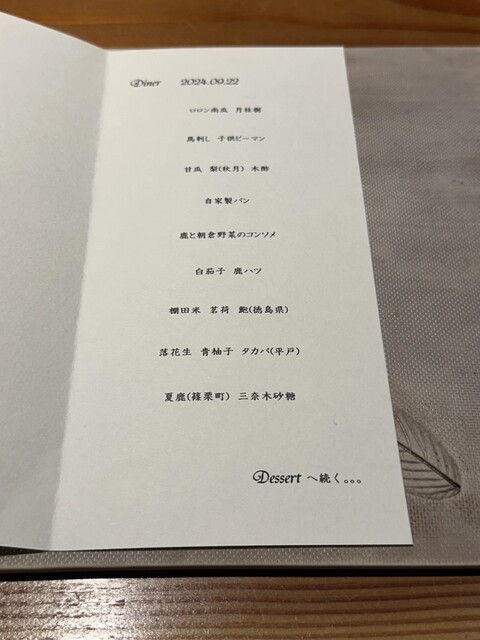 Diner 2024.09.22
ロロン南瓜 月桂樹
馬刺し 子供ピーマン
甘瓜 梨(秋月) 木酢
自家製パン
鹿と朝倉野菜のコンソメ
白茄子 鹿ハツ
棚田米 茗荷 鮑(徳島県)
落花生 青柚子 タカバ(平戸)
夏鹿(篠栗町) 三奈木砂糖
Dessert へ続く。。。